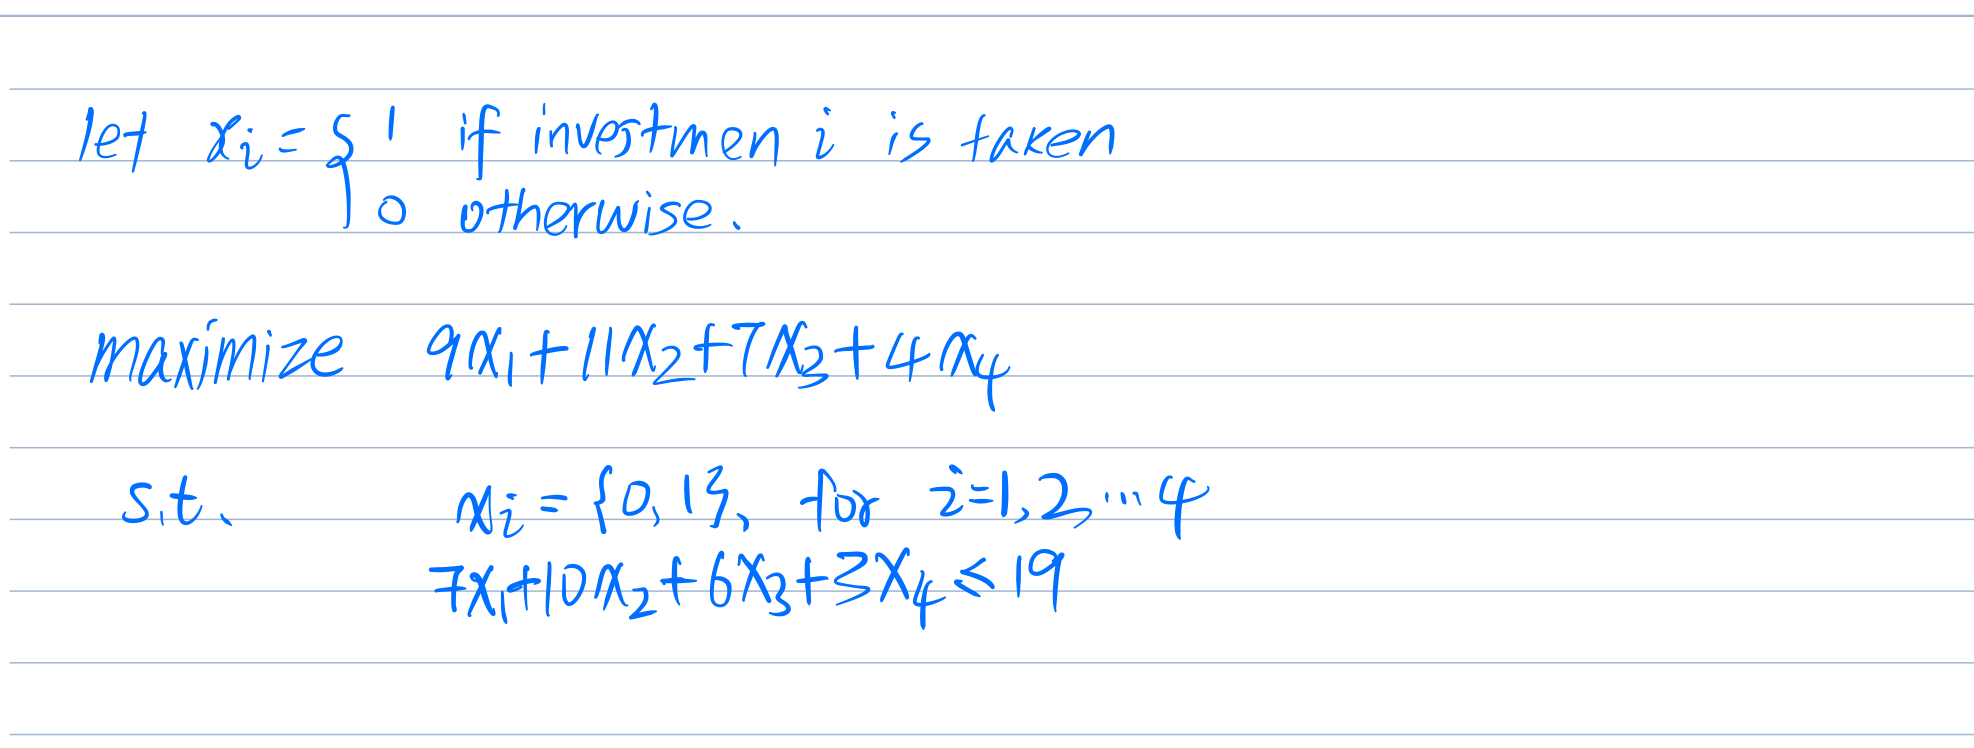 let xᵢ = { 1 if investmen i is taken
0 otherwise.
maximize 9x₁+11x₂+7x₃+4x₄
s.t. xᵢ = {0,1}, for i=1,2,...4
7x₁+10x₂+6x₃+3x₄ ≤ 19